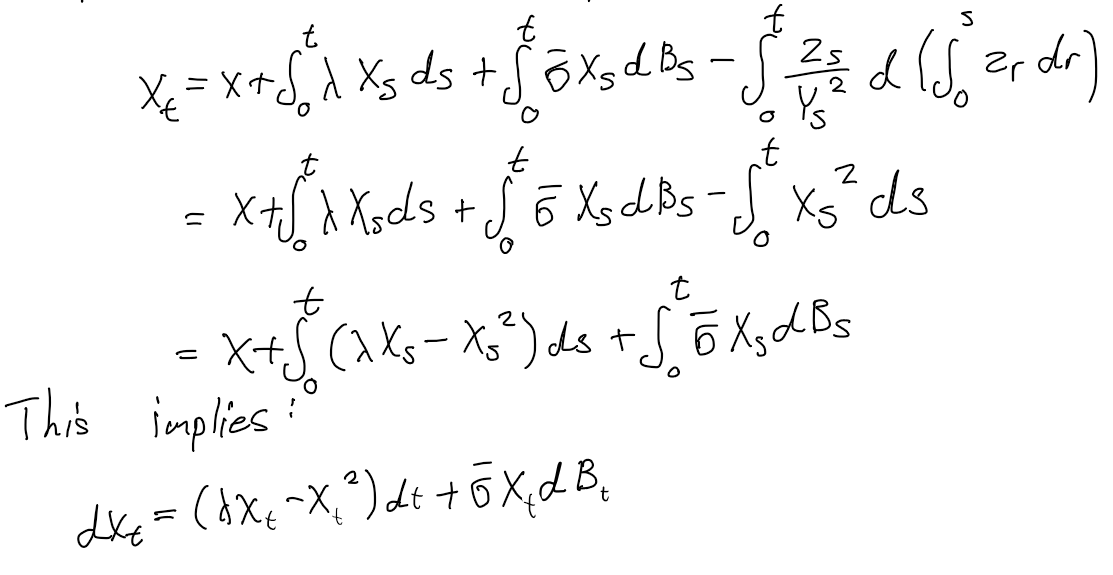 X_t = x + ∫_0^t λ X_s ds + ∫_0^t σ̄ X_s dB_s − ∫_0^t Z_s/Y_s^2 d(∫_0^s z_r dr)
= x + ∫_0^t λ X_s ds + ∫_0^t σ̄ X_s dB_s − ∫_0^t X_s^2 ds
= x + ∫_0^t (λ X_s − X_s^2) ds + ∫_0^t σ̄ X_s dB_s
This implies:
dX_t = (λX_t − X_t^2) dt + σ̄ X_t dB_t